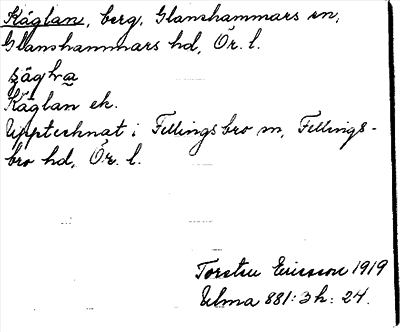 Käglan, berg, Glanshammars sn,
Glanshammars hd, Ör. l.
Käglan ek.
Upptecknat i Fellingsbro sn, Fellings-
bro hd, Ör. l.
Torsten Ericsson 1919
Ulma 881:3 h: 24.